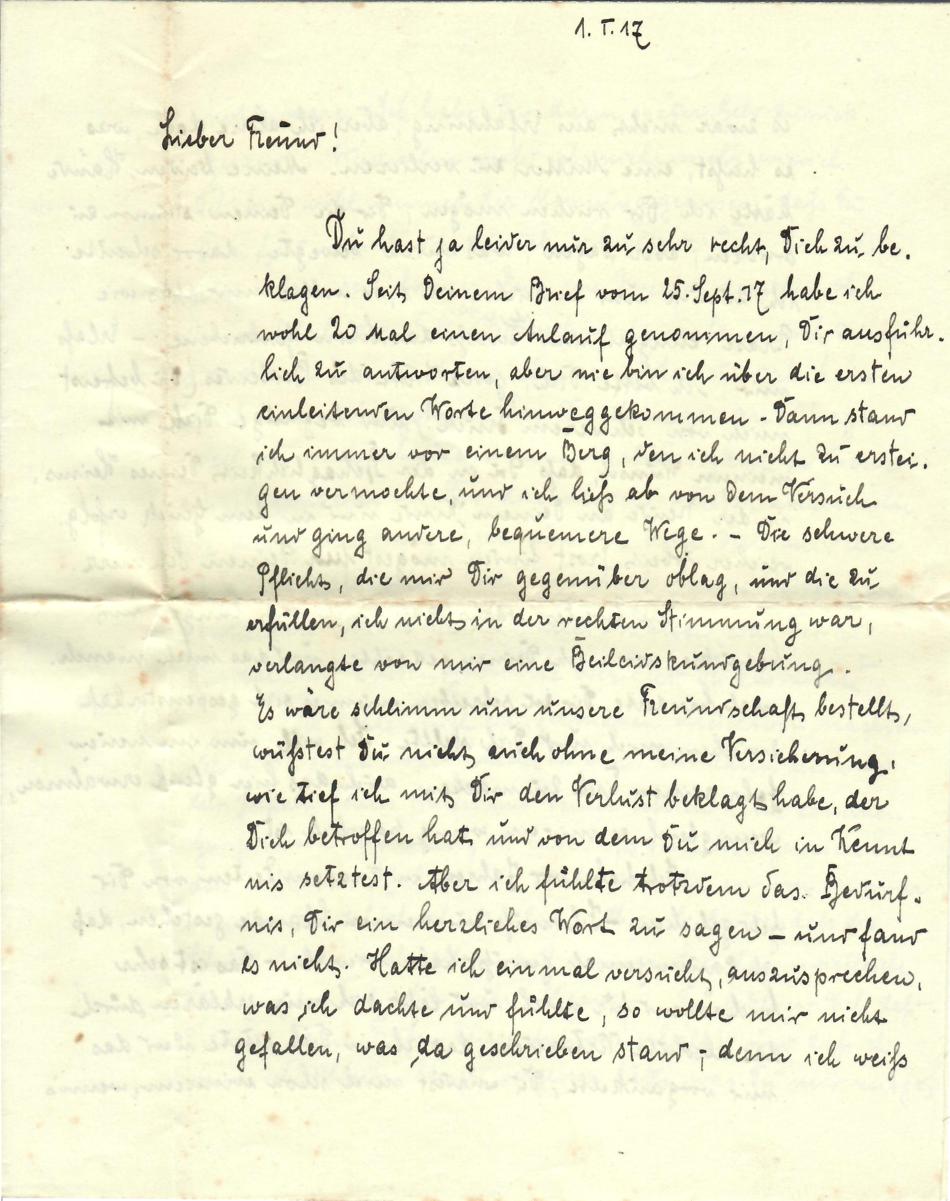 1. I. 17
Lieber Freund!
Du hast ja leider nur zu sehr recht, Dich zu be-
klagen. Seit Deinem Brief vom 25. Sept. 17 habe ich
wohl 20 Mal einen Anlauf genommen, Dir ausführ-
lich zu antworten, aber nie bin ich über die ersten
einleitenden Worte hinweggekommen. Dann stand
ich immer vor einem Berg, den ich nicht zu erstei-
gen vermochte, und ich ließ ab von dem Versuch
und ging andere, bequemere Wege. – Die schwere
Pflicht, die mir Dir gegenüber oblag, und die zu
erfüllen, ich nicht in der rechten Stimmung war,
verlangte von mir eine Beileidskundgebung.
Es wäre schlimm um unsere Freundschaft bestellt,
wüßtest Du nicht auch ohne meine Versicherung,
wie tief ich mit Dir den Verlust beklagt habe, der
Dich betroffen hat und von dem Du mich in Kennt
nis setztest. Aber ich fühlte trotzdem das Bedürf-
nis, Dir ein herzliches Wort zu sagen – und fand
es nicht. Hatte ich einmal versucht, auszusprechen,
was ich dachte und fühlte, so wollte mir nicht
gefallen, was da geschrieben stand; denn ich weiß